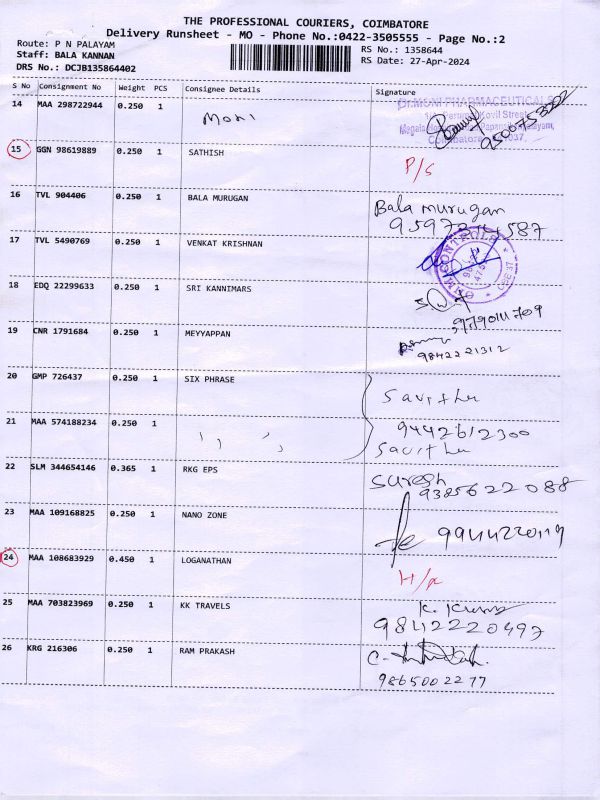 THE PROFESSIONAL COURIERS, COIMBATORE
Delivery Runsheet - MO - Phone No.:0422-3505555 - Page No.:2
Route: P N PALAYAM
Staff: BALA KANNAN
DRS No.: DCJB135864402
RS No.: 1358644
RS Date: 27-Apr-2024
S No Consignment No Weight PCS Consignee Details Signature
14 MAA 298722944 0.250 1 Moni
Dr.MONI PHARMACEUTICALS
Kovil Street
15 GGN 98619889 0.250 1 SATHISH P/S
16 TVL 904406 0.250 1 BALA MURUGAN Bala murugan
17 TVL 5490769 0.250 1 VENKAT KRISHNAN
18 EDQ 22299633 0.250 1 SRI KANNIMARS
19 CNR 1791684 0.250 1 MEYYAPPAN
9842221312
20 GMP 726437 0.250 1 SIX PHRASE Savitha
21 MAA 574188234 0.250 1 9442612300
Savitha
22 SLM 344654146 0.365 1 RKG EPS Suresh
9385622088
23 MAA 109168825 0.250 1 NANO ZONE
24 MAA 108683929 0.450 1 LOGANATHAN
25 MAA 703823969 0.250 1 KK TRAVELS K. Kumar
9842220497
26 KRG 216306 0.250 1 RAM PRAKASH
9865002277